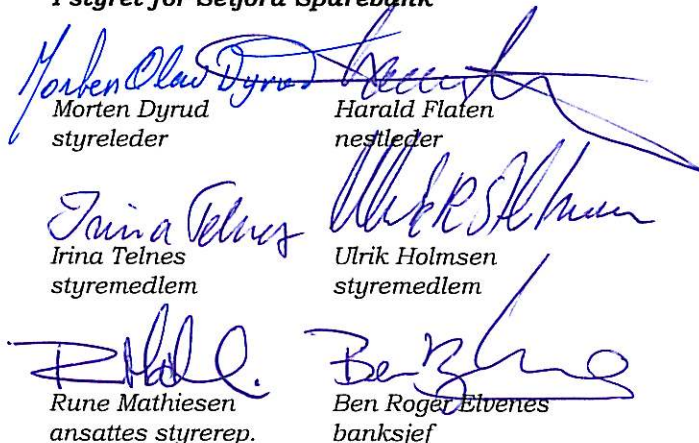 I styret for Setford Sparebank
Morten Olav Dyrud
Morten Dyrud
styreleder
Harald Flaten
nestleder
Irina Telnes
Irina Telnes
styremedlem
Ulrik Holmsen
styremedlem
Rune Mathiesen
ansattes styrerep.
Ben Roger Elvenes
banksjef